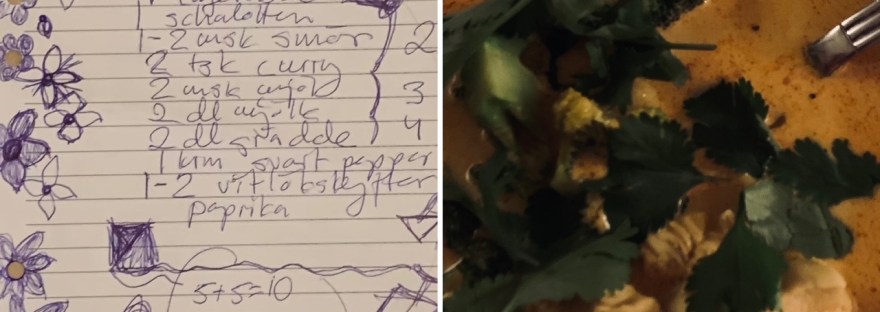 schalotten
1-2 msk smör 2
2 tsk curry
2 msk mjöl 3
2 dl mjölk
2 dl grädde 4
1 krm svart peppar
1-2 vitlöksklyftor
paprika
5+5=10